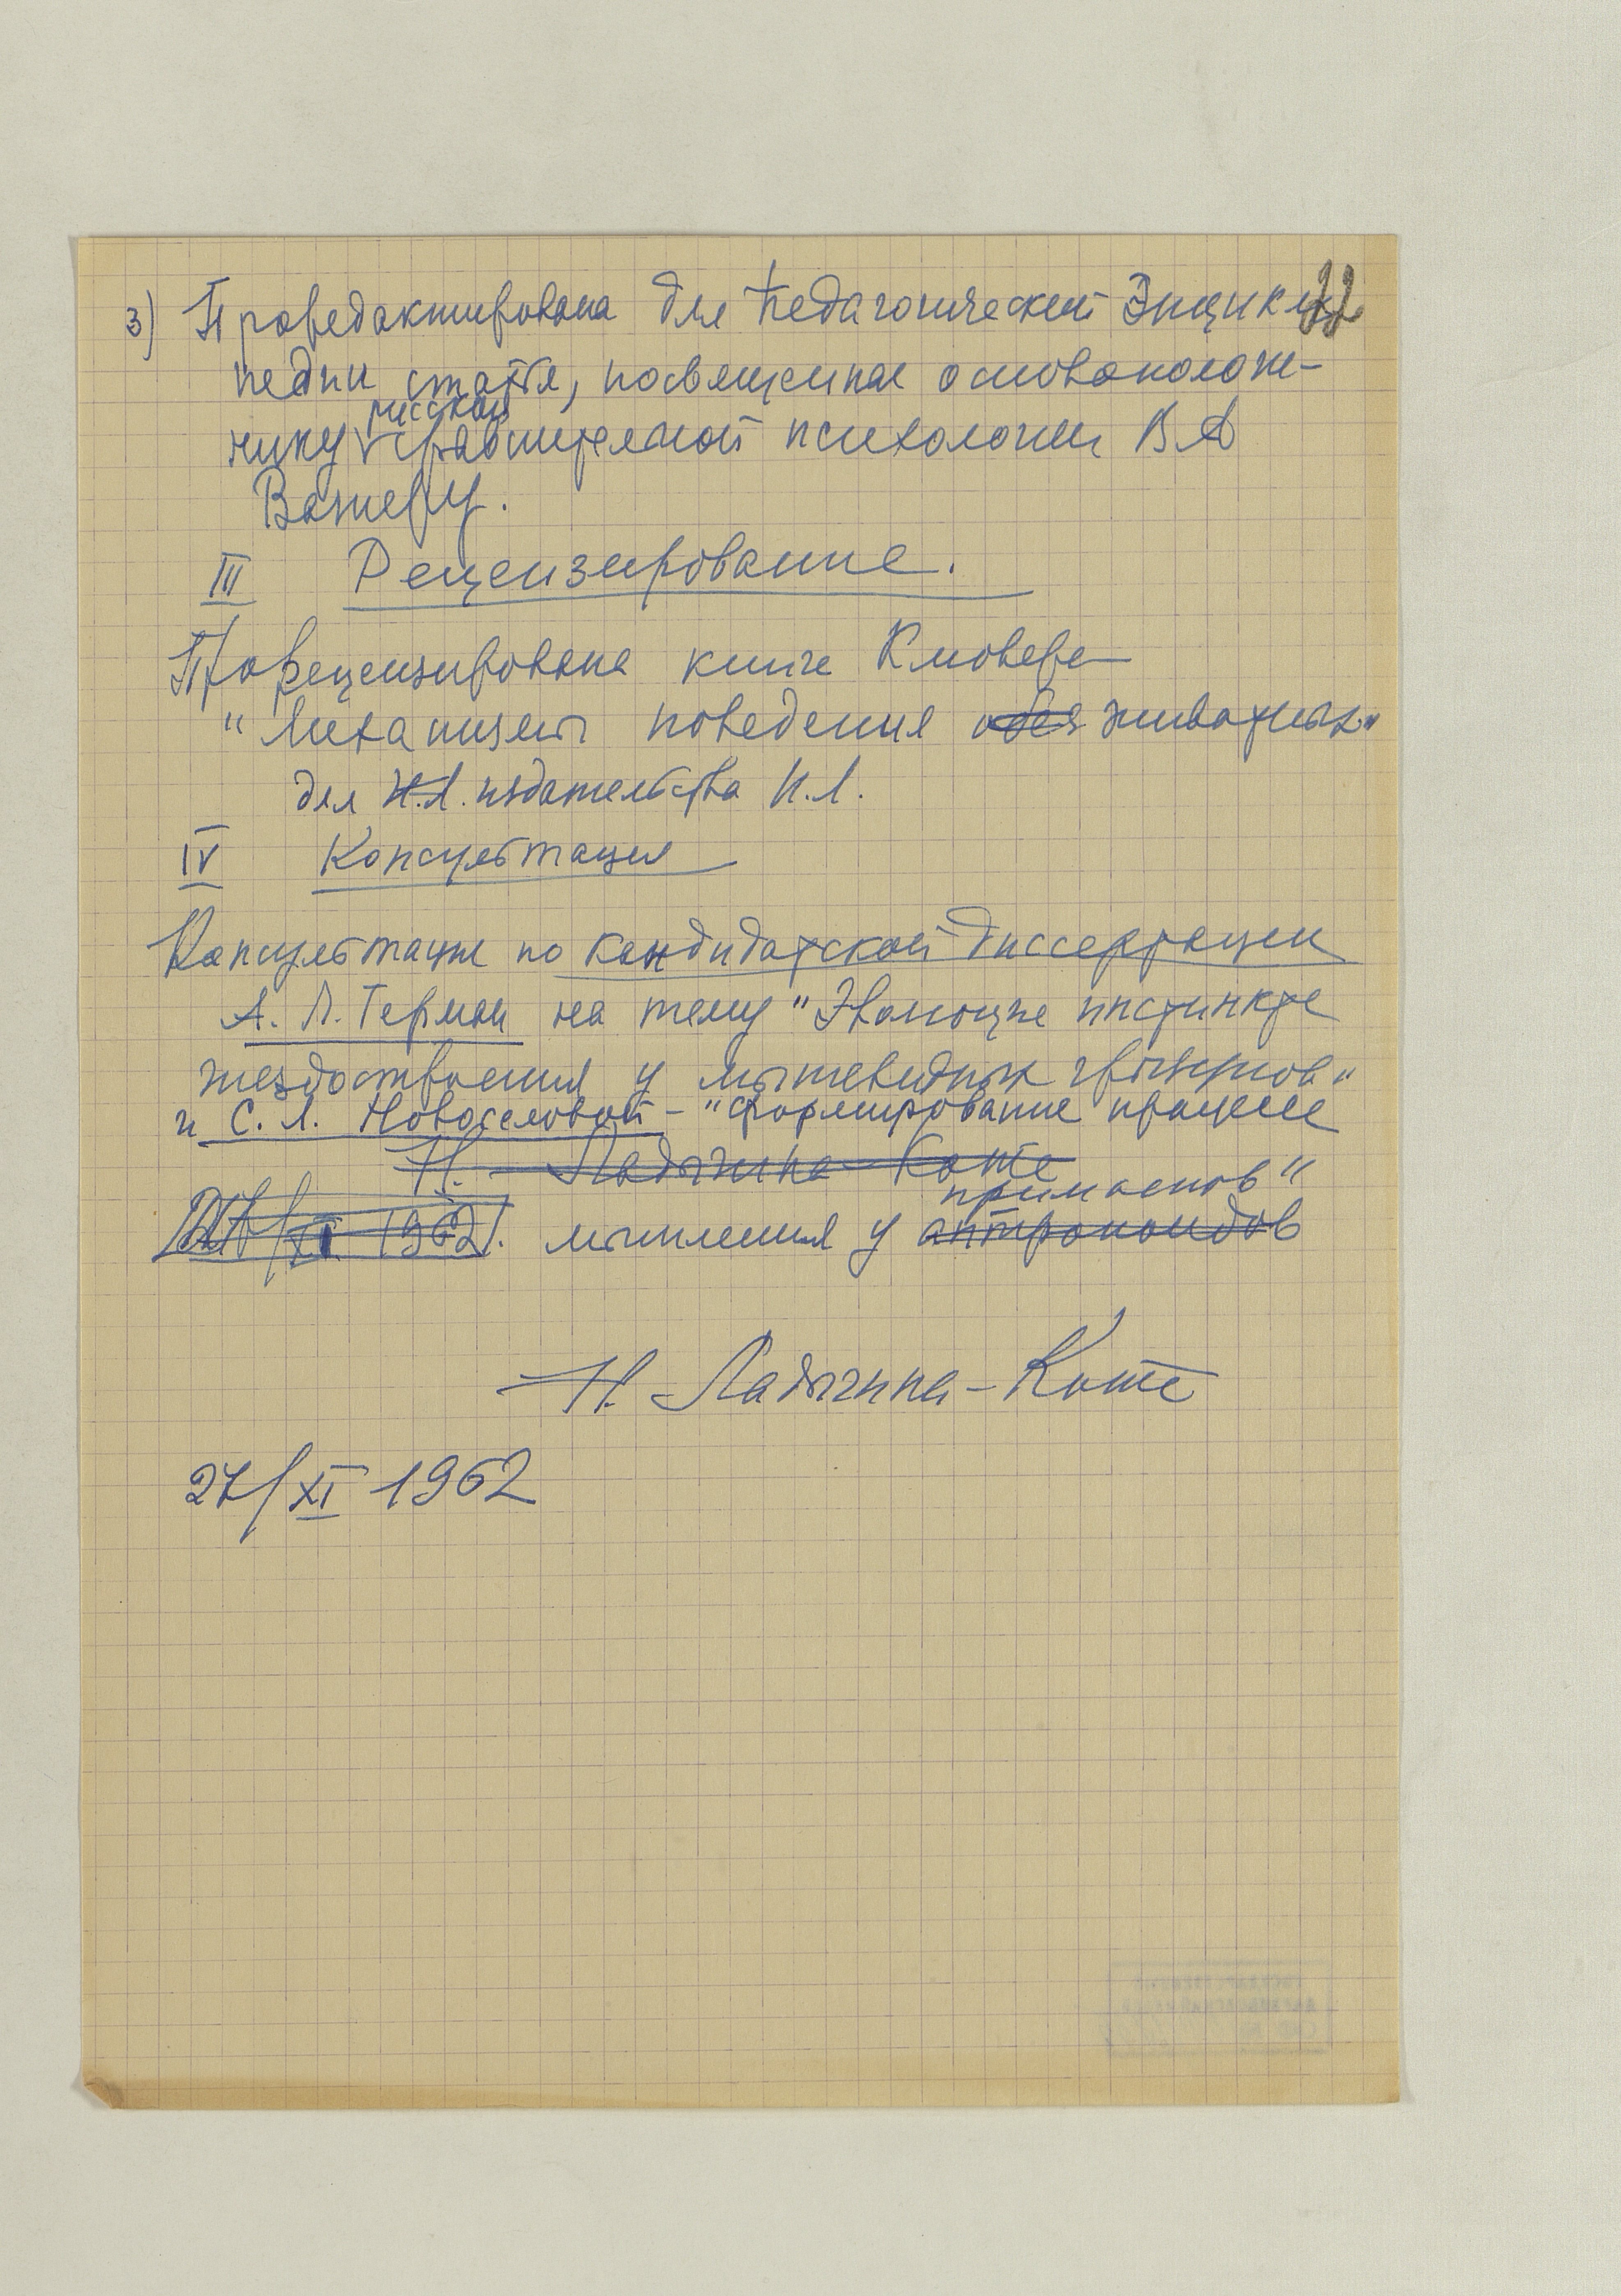 22
3) Проредактирована для Педагогической Энцикло
педии статья, посвященная основополож-
нику русской сравнительной психологии В А
Вагнеру.
III Рецензирование.
Прорецензирована книга
"Механизмы поведения животных"
для Н.Л. издательства И.Л.
IV Консультация
Консультация по кандидатской диссертации
А. Л. Герман на тему "Эволюция инстинкта
гнездостроения у мышевидных грызунов"
и С. Л. Новоселовой - "Формирование процесса
Н. Ладыгина-Котс
приматов"
XI 1962 г. мышления у антропоидов
Н. Ладыгина-Котс
27/XI 1962